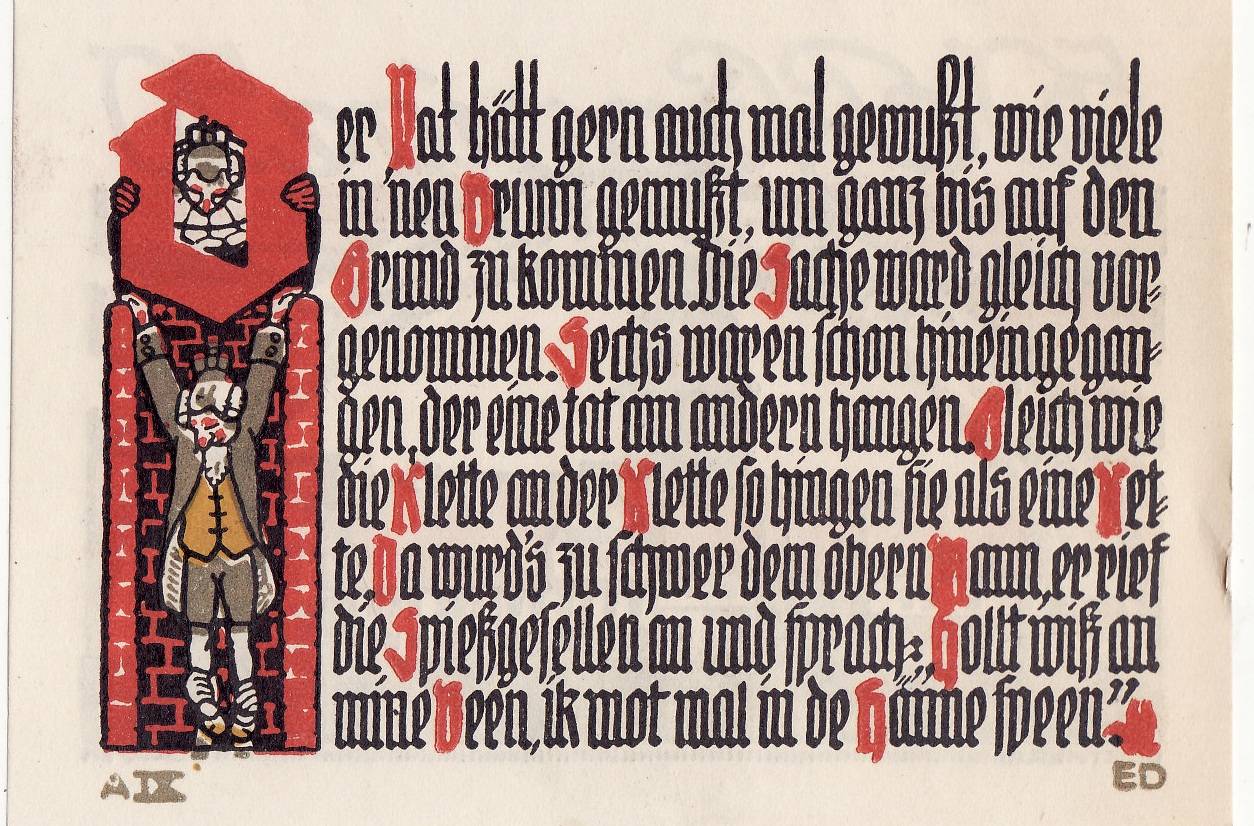 Der Rat hätt gern auch mal gewußt, wie viele
in 'nen Brunn gemußt, um ganz bis auf den
Grund zu kommen. Die Sache ward gleich vor-
genommen. Sechs waren schon hineingegan-
gen, der eine tat am andern hangen. Gleich wie
die Klette an der Klette so hingen sie als eine Ket-
te. Da wurd's zu schwer dem obern Mann, er rief
die Spießgesellen an und sprach: „Hollt wiß an
mine Been, ik mot mal in de Hänne speen”.
A IX
ED